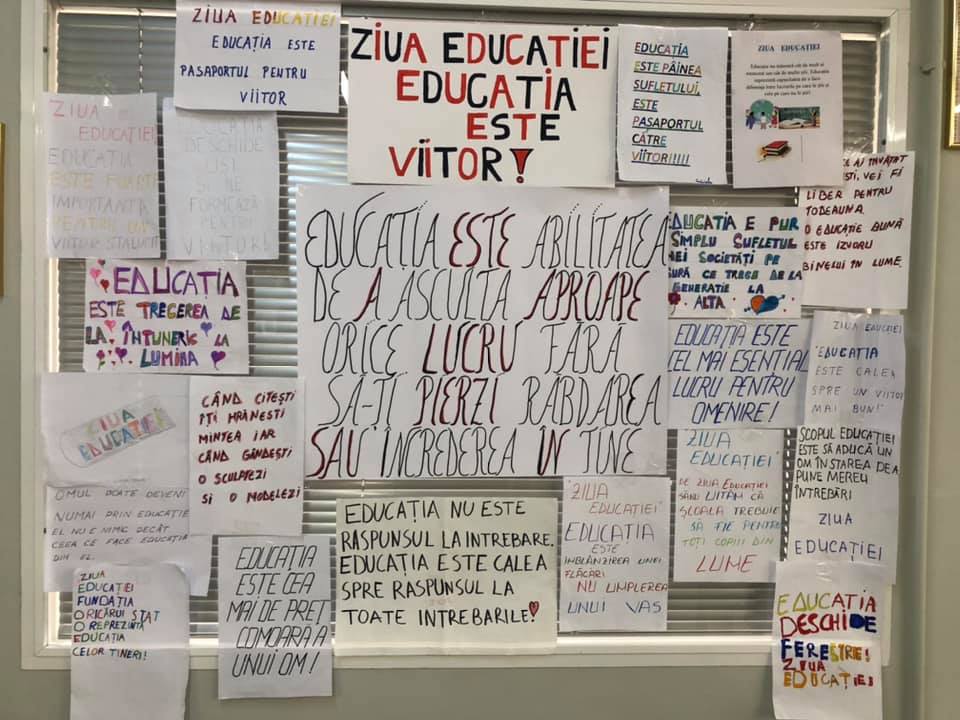 ZIUA EDUCAȚIEI
EDUCAȚIA ESTE
PAȘAPORTUL PENTRU
VIITOR
ZIUA EDUCATIEI
EDUCAȚIA
ESTE
VIITOR!
EDUCAȚIA
ESTE PÂINEA
SUFLETULUI,
ESTE
PAȘAPORTUL
CĂTRE
VIITOR!!!!!
ZIUA EDUCAȚIEI
ZIUA
EDUCAȚIEI
EDUCAȚIA
ESTE FOARTE
IMPORTANTA
PENTRU UN
VIITOR
DESCHIDE
UȘI
ȘI NE
FORMEAZĂ
PENTRU
VIITOR!
AI INVĂȚAT
VEI FI
LIBER PENTRU
TODEAUNA.
O EDUCAȚIE BUNĂ
ESTE IZVORU
BINELUI IN LUME.
EDUCAȚIA ESTE ABILITATEA
DE A ASCULTA APROAPE
ORICE LUCRU FĂRĂ
SĂ-ȚI PIERZI RĂBDAREA
SAU ÎNCREDEREA ÎN TINE
EDUCATIA E PUR
SIMPLU SUFLETUL
NEI SOCIETĂȚI PE
SURĂ CE TREGE DE LA
GENERATIE LA
ALTA
EDUCAȚIA
ESTE TREGEREA DE
LA ÎNTUNERIC LA
LUMINA
EDUCAȚIA ESTE
CEL MAI ESENȚIAL
LUCRU PENTRU
OMENIRE!
ZIUA EDUCAȚIEI
"EDUCAȚIA
ESTE CALEA
SPRE UN VIITOR
MAI BUN!"
ZIUA
EDUCAȚIEI
CÂND CITEȘTI
ÎȚI HRĂNEȘTI
MINTEA IAR
CÂND GÂNDEȘTI
O SCULPTEZI
ȘI O MODELEZI
ZIUA
EDUCAȚIEI"
DE ZIUA EDUCAȚIEI
SĂ NU UITĂM CĂ
ȘCOALA TREBUIE
SĂ FIE PENTRU
TOȚI COPIII DIN
LUME
SCOPUL EDUCAȚIEI
ESTE SĂ ADUCĂ UN
OM ÎN STAREA DE A
PUNE MEREU
ÎNTREBĂRI
ZIUA
EDUCAȚIEI
OMUL POATE DEVENI
NUMAI PRIN EDUCAȚIE
EL NU E NIMIC DECÂT
CEEA CE FACE EDUCAȚIA
DIN EL.
EDUCAȚIA NU ESTE
RASPUNSUL LA INTREBARE.
EDUCAȚIA ESTE CALEA
SPRE RASPUNSUL LA
TOATE INTREBARILE!
ZIUA
EDUCAȚIEI"
EDUCAȚIA
ESTE
IMBLÂNZIREA UNEI
FLĂCĂRI
NU UMPLEREA
UNUI VAS
ZIUA
EDUCAȚIEI
FUNDAȚIA
ORICĂRUI STAT
O REPREZINTĂ
EDUCAȚIA
CELOR TINERI!
EDUCAȚIA
ESTE CEA
MAI DE PREȚ
COMOARA A
UNUI OM!
EDUCAȚIA
DESCHIDE
FERESTRE!
ZIUA
EDUCAȚIEI